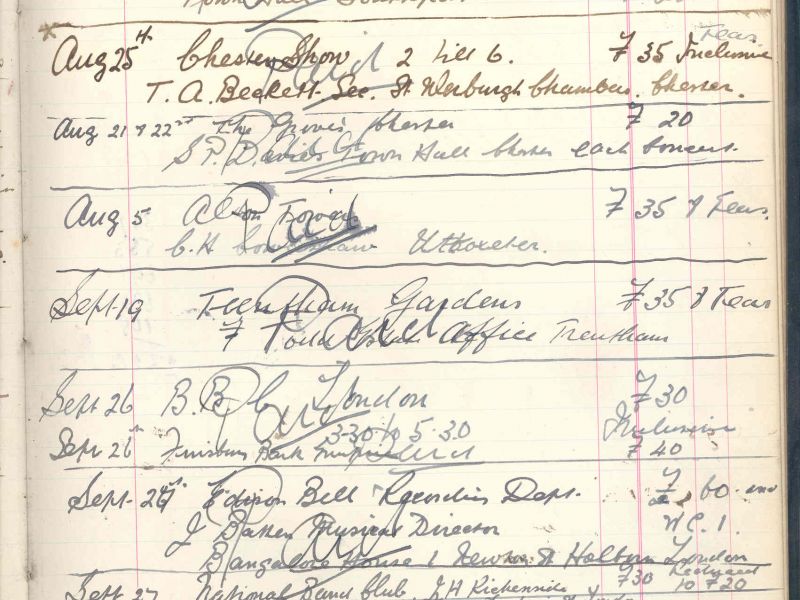 Town Hall
Teas
Aug 25th Chester Show 2 till 6. £ 35 Inclusive
T. A. Beckett. Sec. St Werburgh Chambers. Chester.
Aug 21 & 22nd The Groves Chester £ 20
S P. Davies Town Hall Chester each
Aug 5 Alton Towers £ 35 & Teas.
C. H Uttoxeter.
Sept 19 Trentham Gardens £ 35 & Teas
Office Trentham
Sept 26 B. B. C London £ 30
3-30 to 5.30 Inclusive
Sept 26th Finsbury Park Empire £ 40
Paid
Sept. Edison Bell Recording Dept. £ 60
J Baker Musical Director W.C. 1.
Bangalore House 1 Newton St Holborn London
Sept 27 National Band Club. J H £30 Reduced to £20